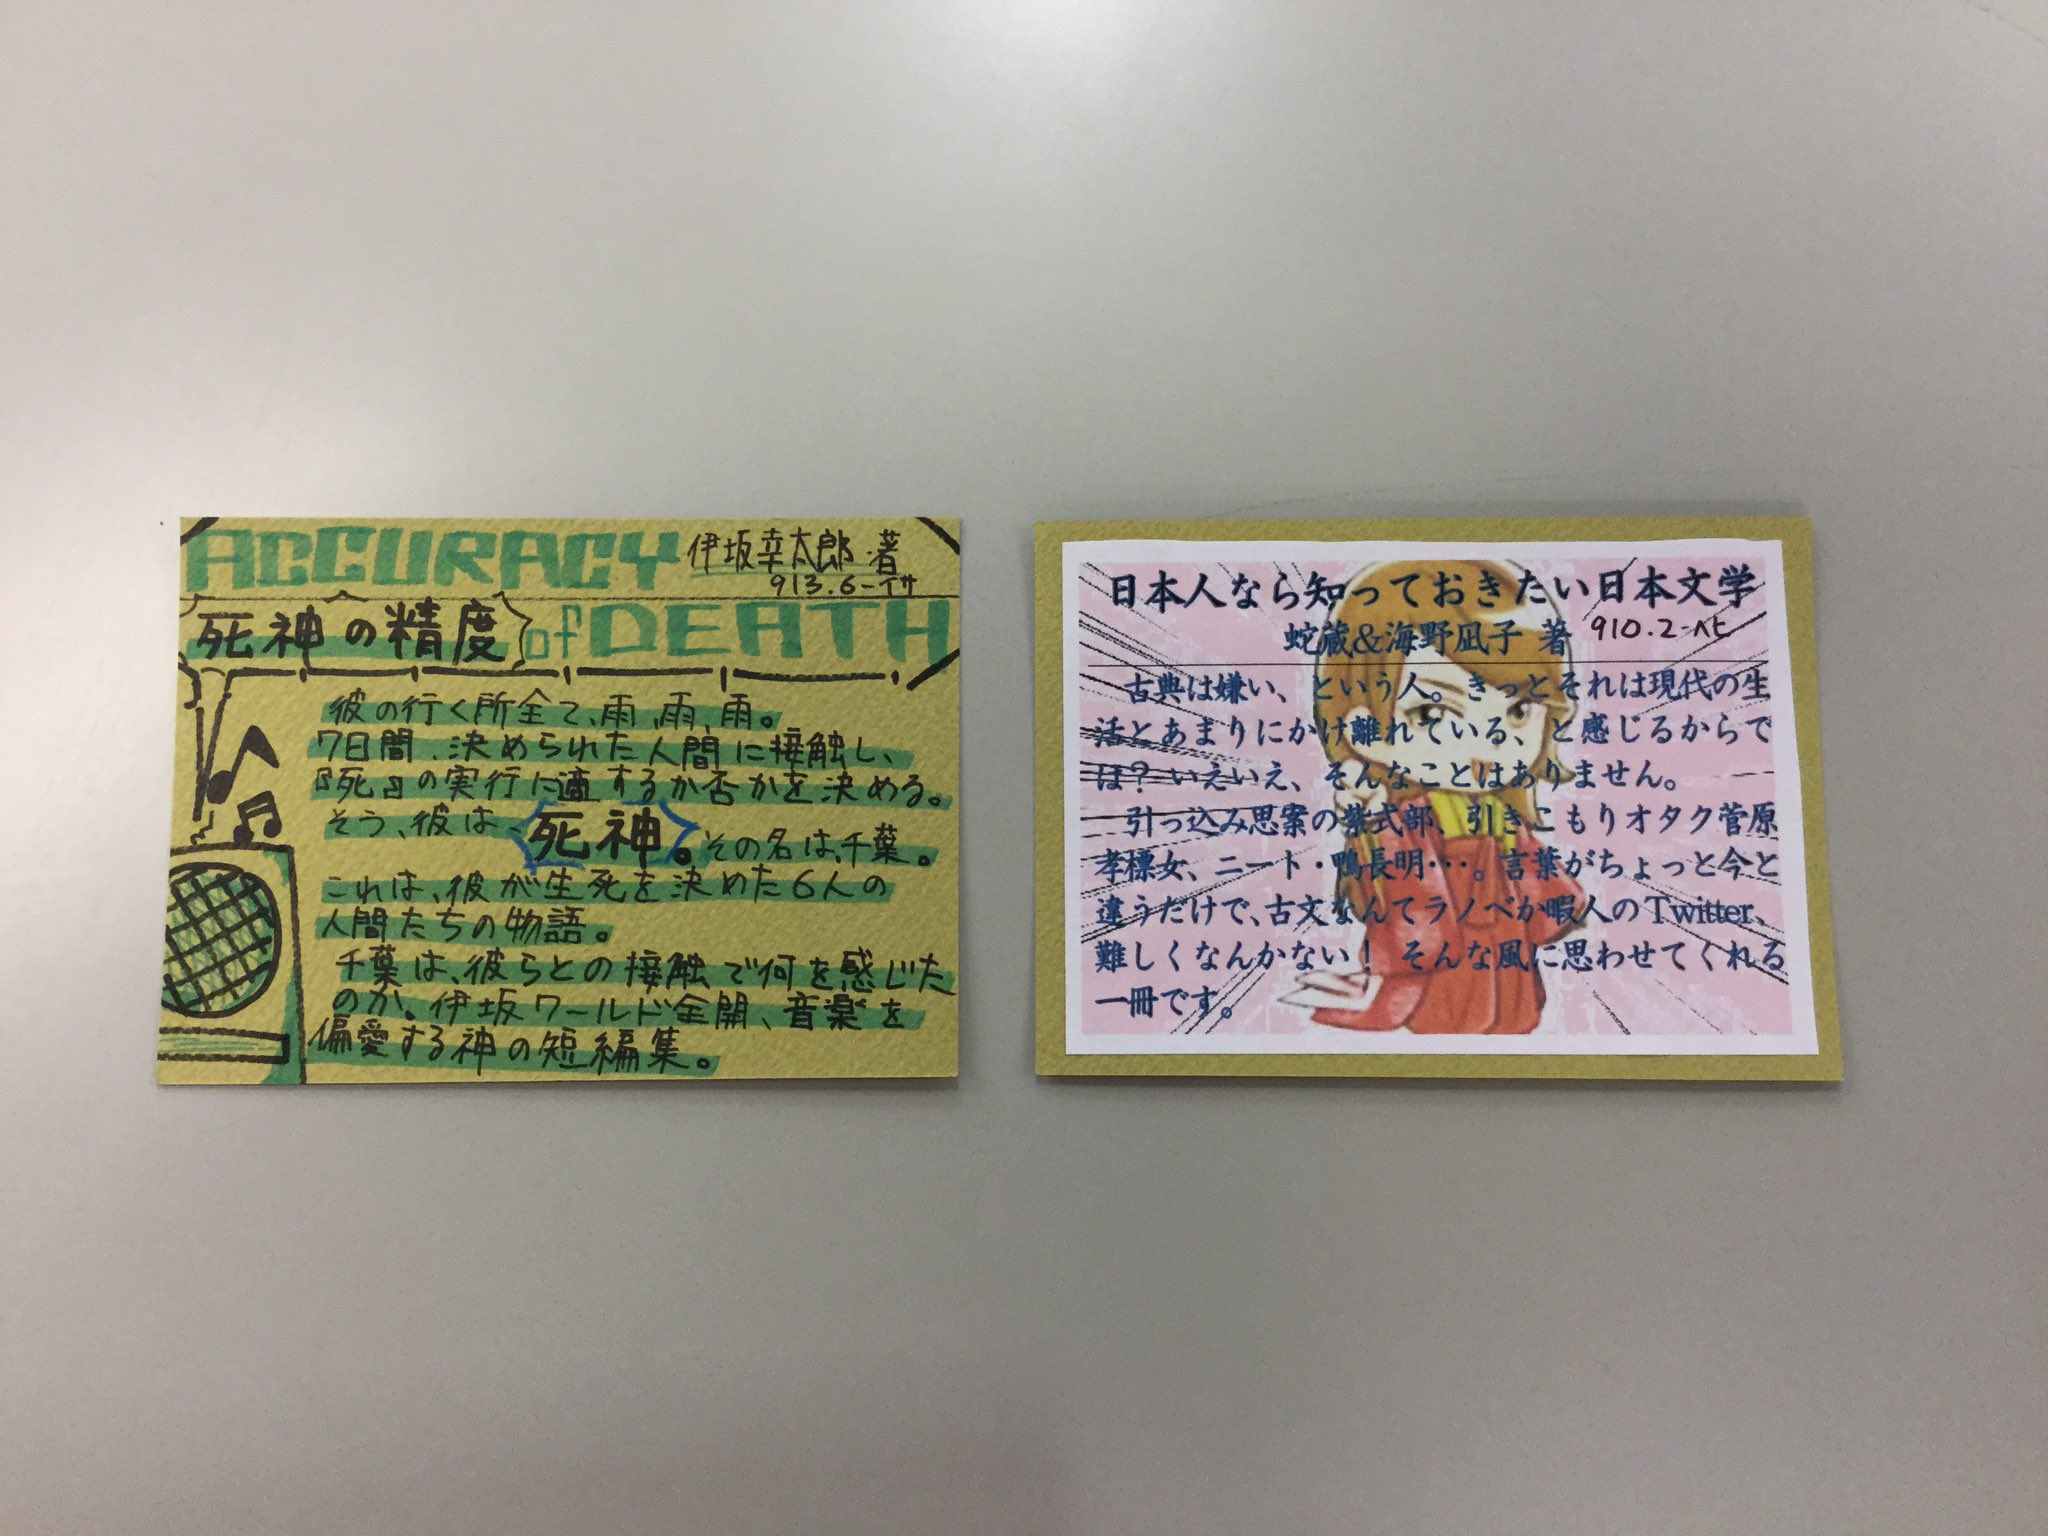 ACCURACY
伊坂幸太郎・著
913.6-イサ
死神の精度
of DEATH
彼の行く所全て、雨、雨、雨。
7日間、決められた人間に接触し、
『死』の実行に適するか否かを決める。
そう、彼は、死神。その名は、千葉。
これは、彼が生死を決めた6人の
人間たちの物語。
千葉は、彼らとの接触で何を感じた
のか。伊坂ワールド全開、音楽を
偏愛する神の短編集。
日本人なら知っておきたい日本文学
蛇蔵&海野凪子 著 910.2-ヘビ
古典は嫌い、という人。きっとそれは現代の生
活とあまりにかけ離れている、と感じるからで
は？いえいえ、そんなことはありません。
引っ込み思案の紫式部、引きこもりオタク菅原
孝標女、ニート・鴨長明…。言葉がちょっと今と
違うだけで、古文なんてラノベか暇人のTwitter、
難しくなんかない！ そんな風に思わせてくれる
一冊です。